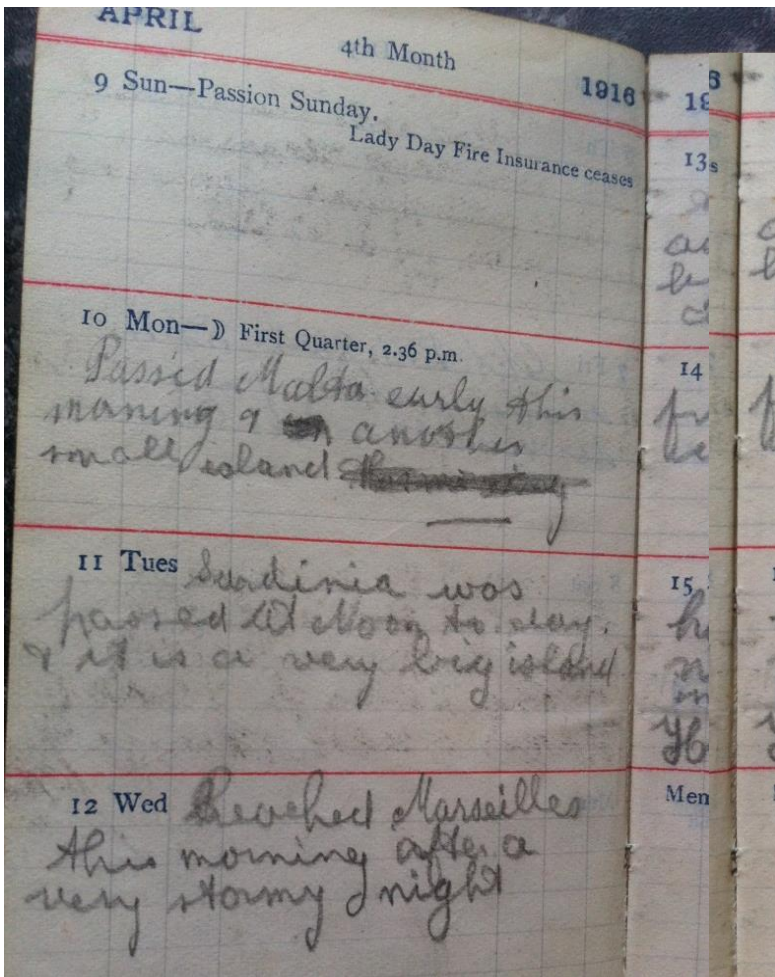 APRIL
4th Month
1916
9 Sun—Passion Sunday.
Lady Day Fire Insurance ceases
10 Mon—☽ First Quarter, 2.36 p.m.
Passed Malta early this
morning & another
small island
11 Tues Surdinia was
passed at Noon to day.
& it is a very big island
12 Wed Reached Marseilles
this morning after a
very stormy night
13
14
15
Men